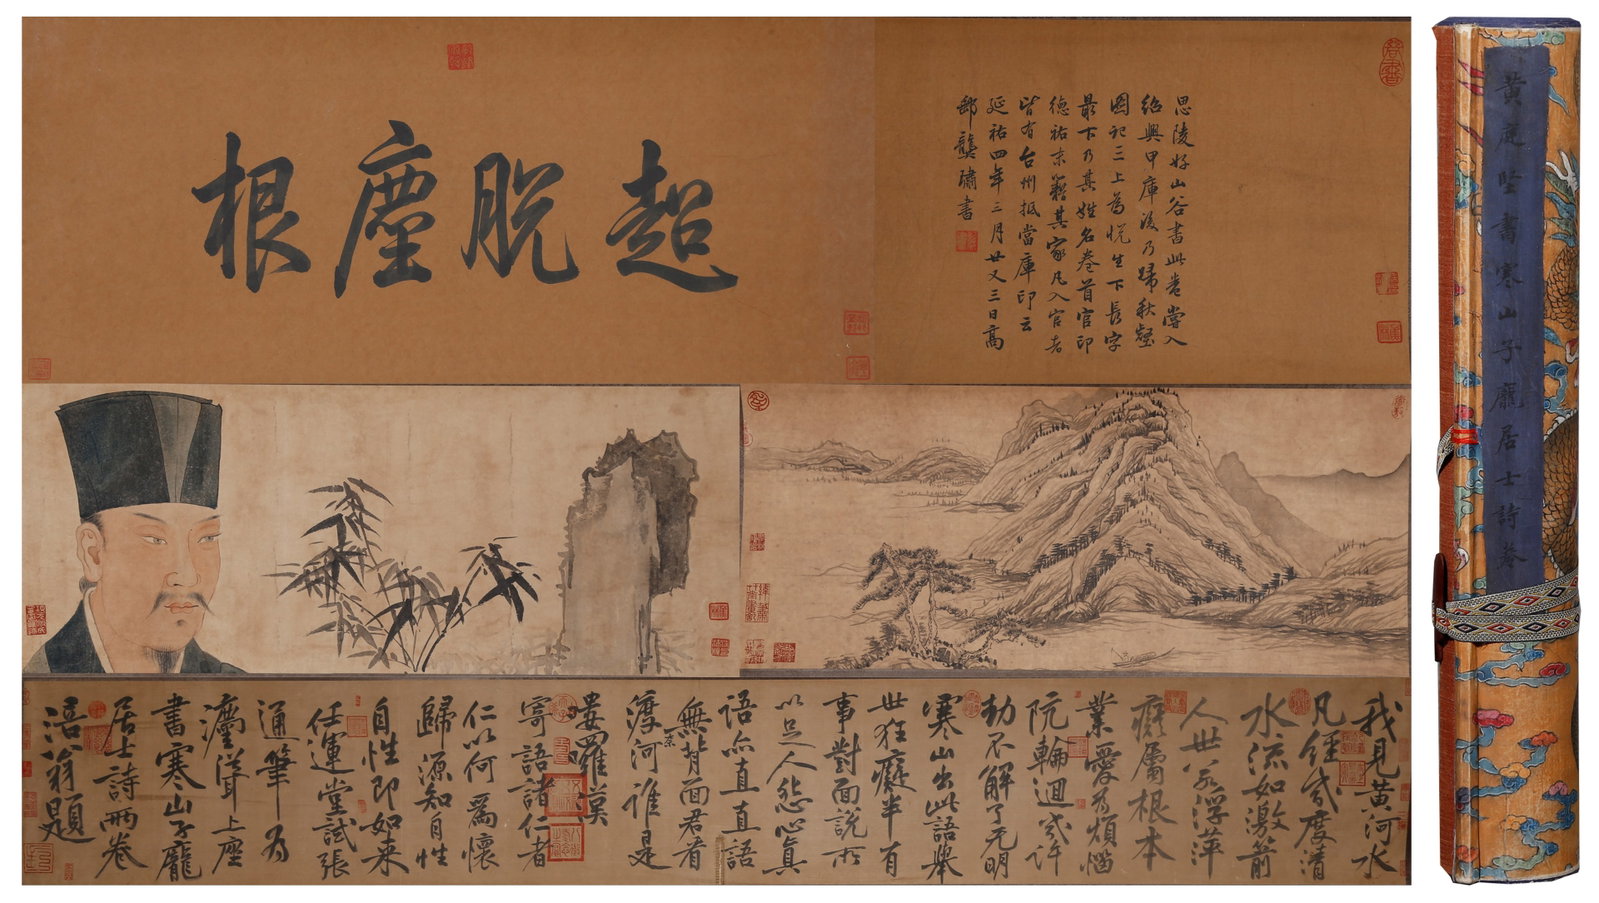 思陵好山谷書此卷嘗入
紹興甲庫後乃歸秋壑
圖記三上為悅生下長字
最下乃其姓名卷首官印
德祐末籍其家凡入官者
皆有台州抵當庫印云
延祐四年三月廿又三日高
郵龔璛書
超脫塵根
我見黃河水
凡經幾度清
水流如激箭
人世若浮萍
癡屬根本
業愛為煩惱
阬輪迴幾許
劫不解了无明
寒山出此語舉
世狂癡半有
事對面說所
以足人怨心真
語亦直直語
無背面君看
柰
渡河誰是
嘍羅漠
寄語諸仁者
仁以何為懷
歸源知自性
自性即如来
任運堂試張
通筆為
聳上座
書寒山子龐
居士詩兩卷
涪翁題
黃庭坚書寒山子龐居士詩卷